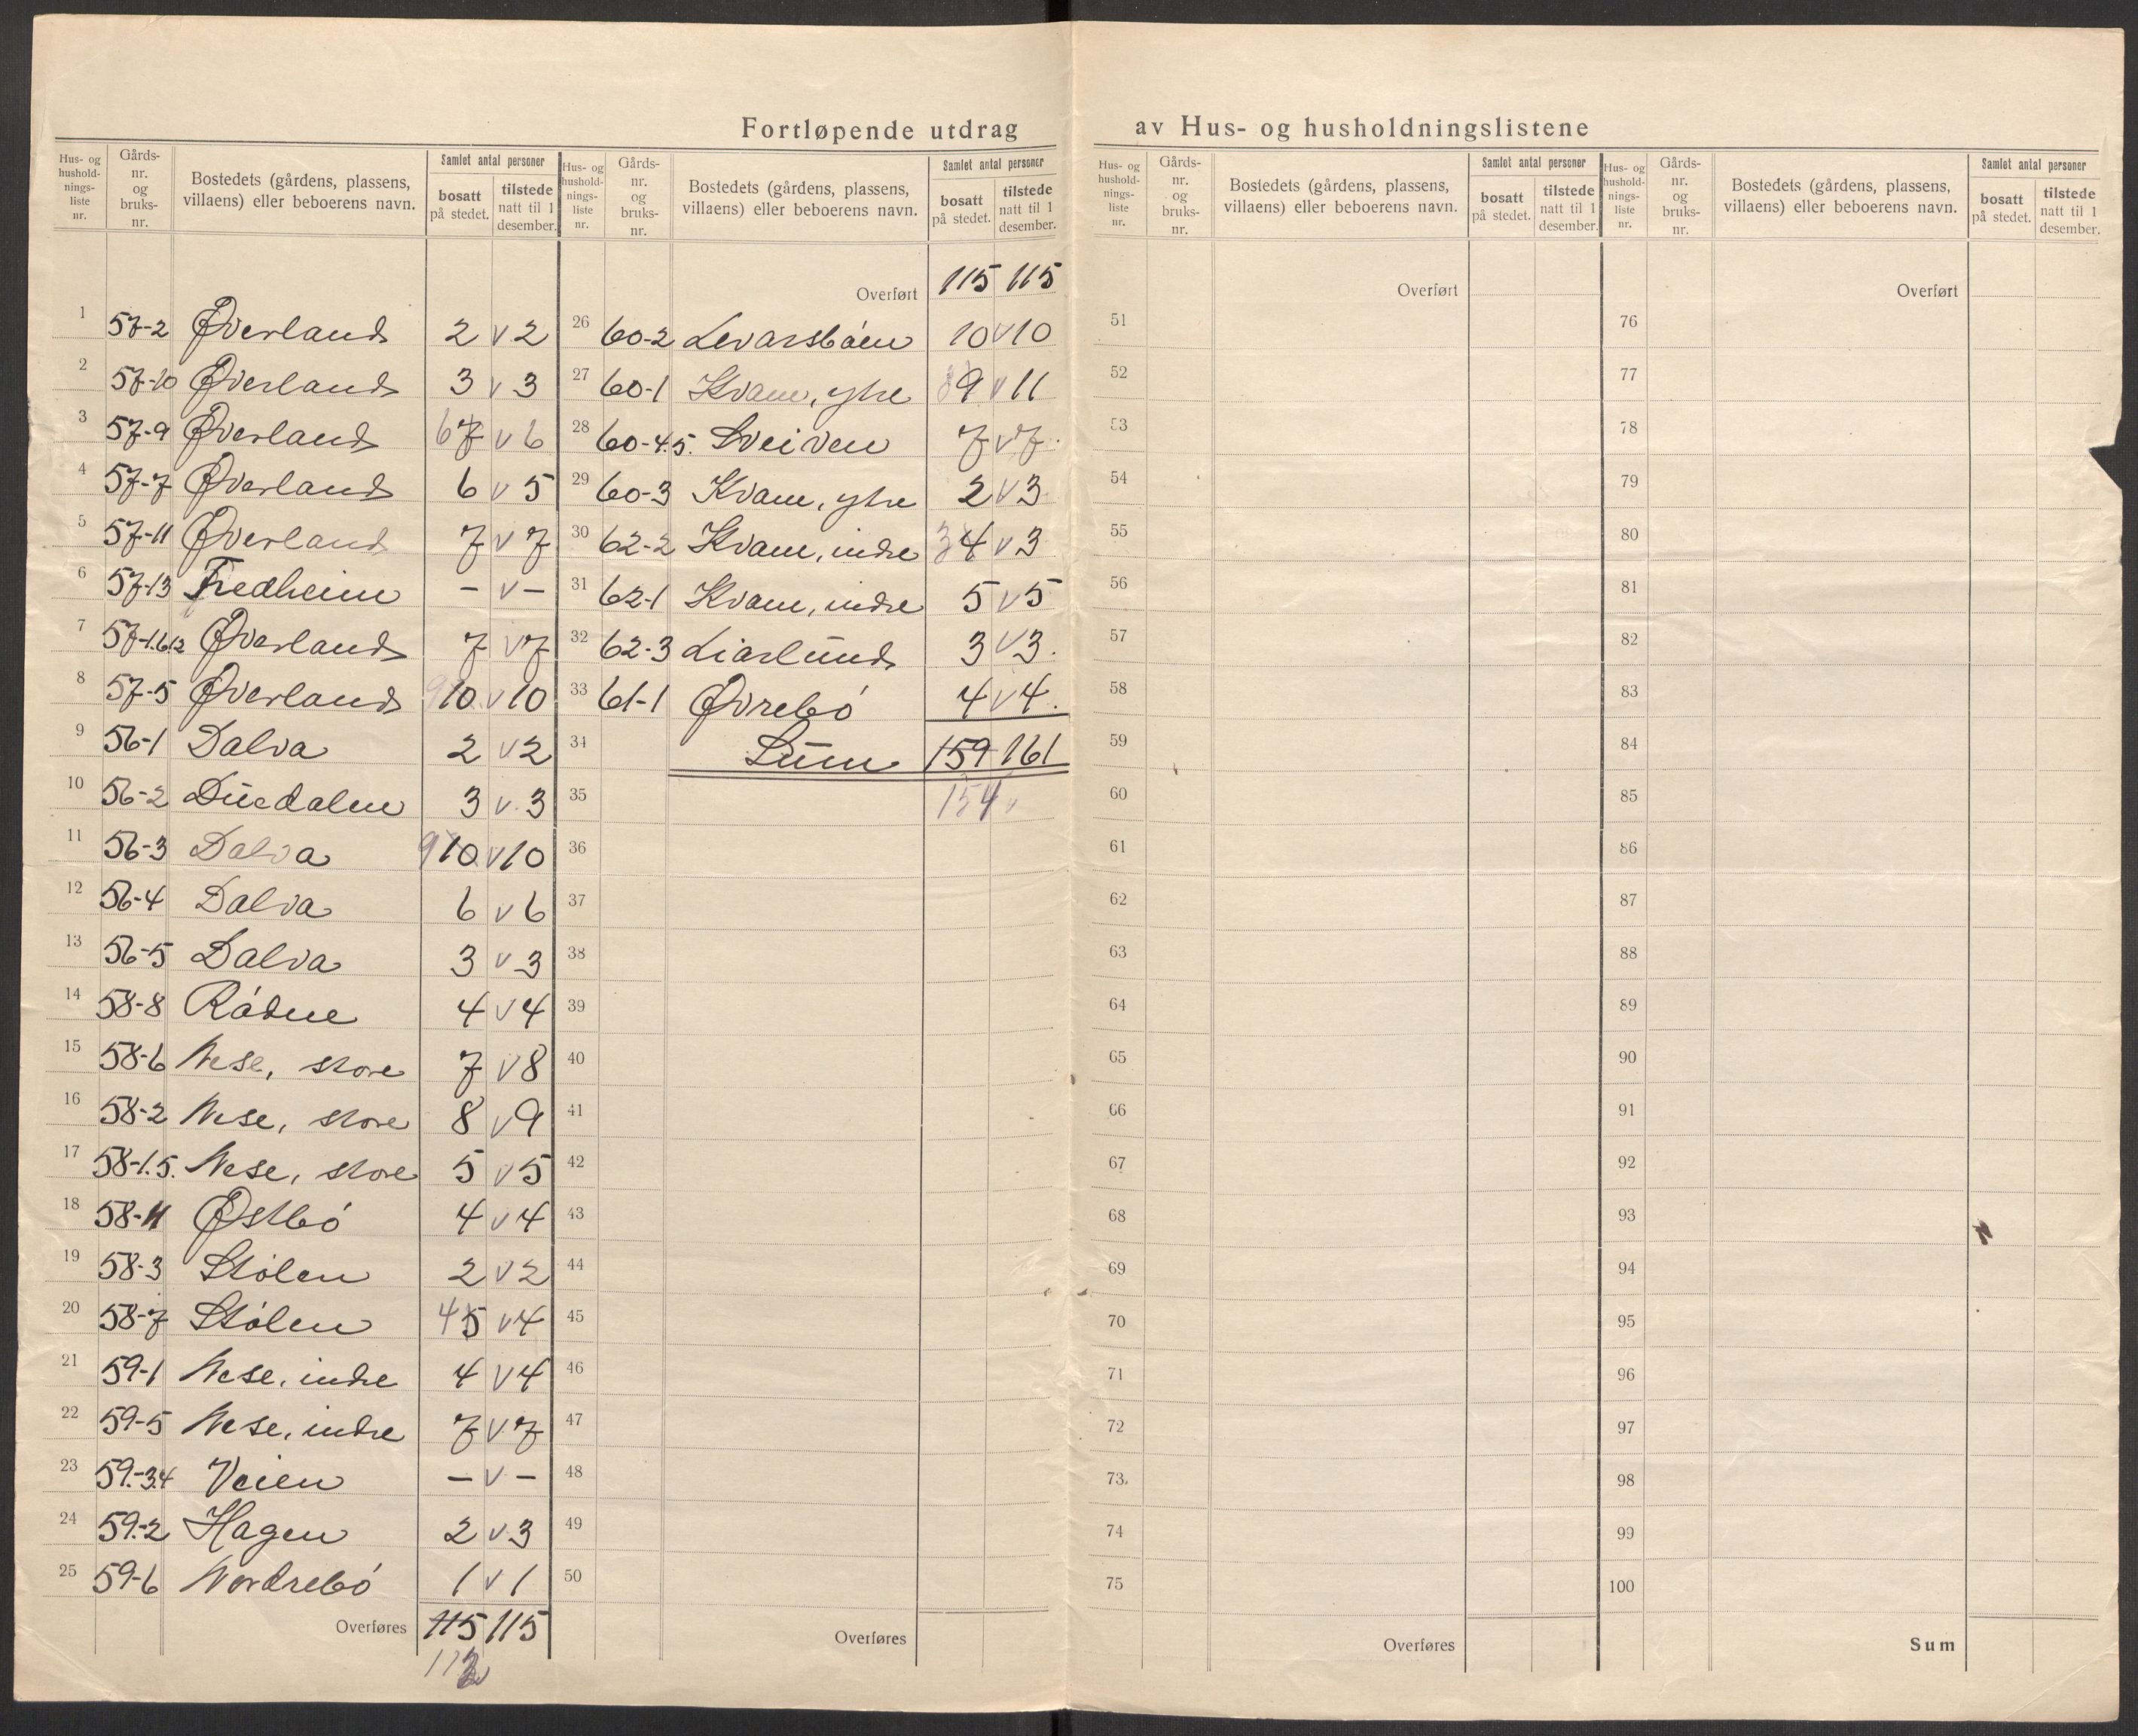 Fortløpende utdrag av Hus- og husholdningslistene
Hus- og hushold- nings- liste nr. | Gårds- nr. og bruks- nr. | Bostedets (gårdens, plassens, villaens) eller beboerens navn. | Samlet antal personer | bosatt på stedet. | tilstede natt til 1 desember.
1 57-2 Øverland 2 v 2
2 57-10 Øverland 3 v 3
3 57-9 Øverland 6 7 v 6
4 57-7 Øverland 6 v 5
5 57-11 Øverland 7 v 7
6 57-13 Fredheim – v –
7 57-1.6.12 Øverland 7 v 7
8 57-5 Øverland 9 10 v 10
9 56-1 Dalva 2 v 2
10 56-2 Duedalen 3 v 3
11 56-3 Dalva 9 10 v 10
12 56-4 Dalva 6 v 6
13 56-5 Dalva 3 v 3
14 58-8 Rådne 4 v 4
15 58-6 Nese, store 7 v 8
16 58-2 Nese, store 8 v 9
17 58-1.5. Nese, store 5 v 5
18 58-11 Østbó 4 v 4
19 58-3 Stólen 2 v 2
20 58-7 Stólen 4 5 v 4
21 59-1 Nese, indre 4 v 4
22 59-5 Nese, indre 7 v 7
23 59-3.4 Veien – v –
24 59-2 Hagen 2 v 3
25 59-6 Nordrebó 1 v 1
Overføres 115 115
Hus- og hushold- nings- liste nr. | Gårds- nr. og bruks- nr. | Bostedets (gårdens, plassens, villaens) eller beboerens navn. | Samlet antal personer | bosatt på stedet. | tilstede natt til 1 desember.
Overført 115 115
26 60-2 Levarsbóen 10 v 10
27 60-1 Kvam, ytre 8 9 v 11
28 60-4.5. Sveiven 7 v 7
29 60-3 Kvam, ytre 2 v 3
30 62-2 Kvam, indre 3 4 v 3
31 62-1 Kvam, indre 5 v 5
32 62-3 Liarlund 3 v 3.
33 61-1 Øvrebó 4 v 4.
34 Sum 159 161
35 154 v
36
37
38
39
40
41
42
43
44
45
46
47
48
49
50
Overføres
Hus- og hushold- nings- liste nr. | Gårds- nr. og bruks- nr. | Bostedets (gårdens, plassens, villaens) eller beboerens navn. | Samlet antal personer | bosatt på stedet. | tilstede natt til 1 desember.
Overført
51
52
53
54
55
56
57
58
59
60
61
62
63
64
65
66
67
68
69
70
71
72
73
74
75
Overføres
Hus- og hushold- nings- liste nr. | Gårds- nr. og bruks- nr. | Bostedets (gårdens, plassens, villaens) eller beboerens navn. | Samlet antal personer | bosatt på stedet. | tilstede natt til 1 desember.
Overført
76
77
78
79
80
81
82
83
84
85
86
87
88
89
90
91
92
93
94
95
96
97
98
99
100
Sum